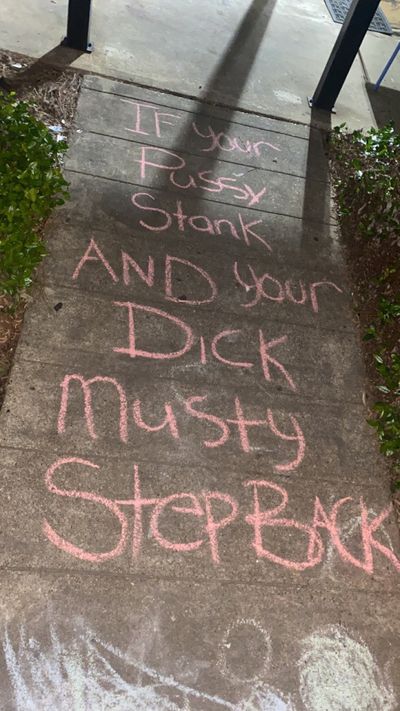 IF your
Pussy
Stank
AND your
DICK
Musty
Step BACK